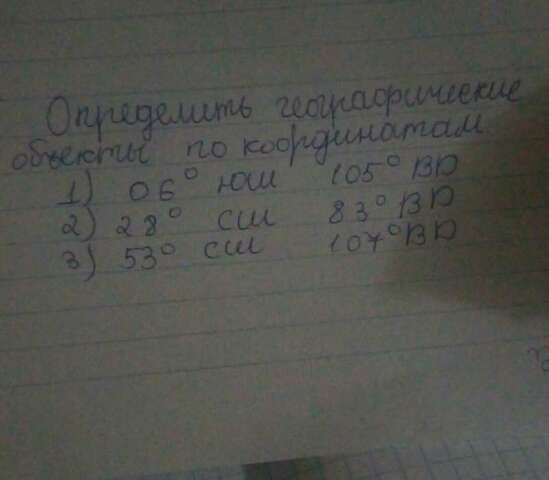 Определить географические
объекты по координатам
1) 06° юш 105° ВД
2) 28° сш 83° ВД
3) 53° сш 107° ВД